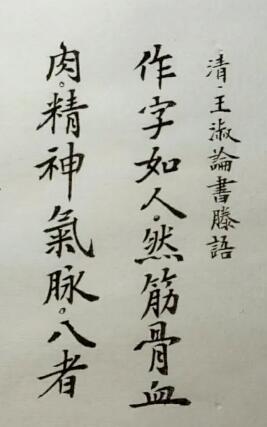 清·王淑論書賸語
作字如人。然筋骨血
肉。精神氣脉。八者